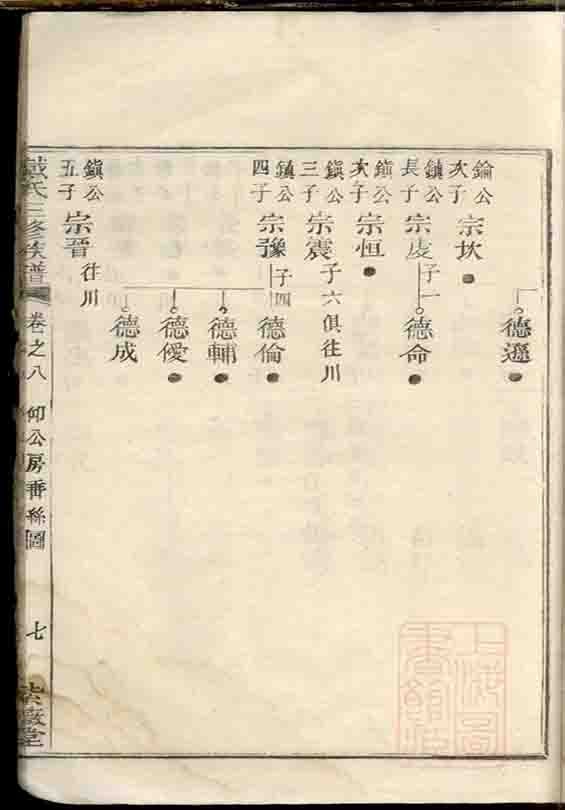 德遜
錀公
次子
宗坎
鎮公
長子
宗虔
子一
德命
鎮公
次子
宗恒
鎮公
三子
宗震
子六俱往川
鎮公
四子
宗豫
子四
德倫
德輔
德優
德成
鎮公
五子
宗晉
往川
戴氏三修族譜
卷之八
仰公房垂絲圖
七
上海圖書館